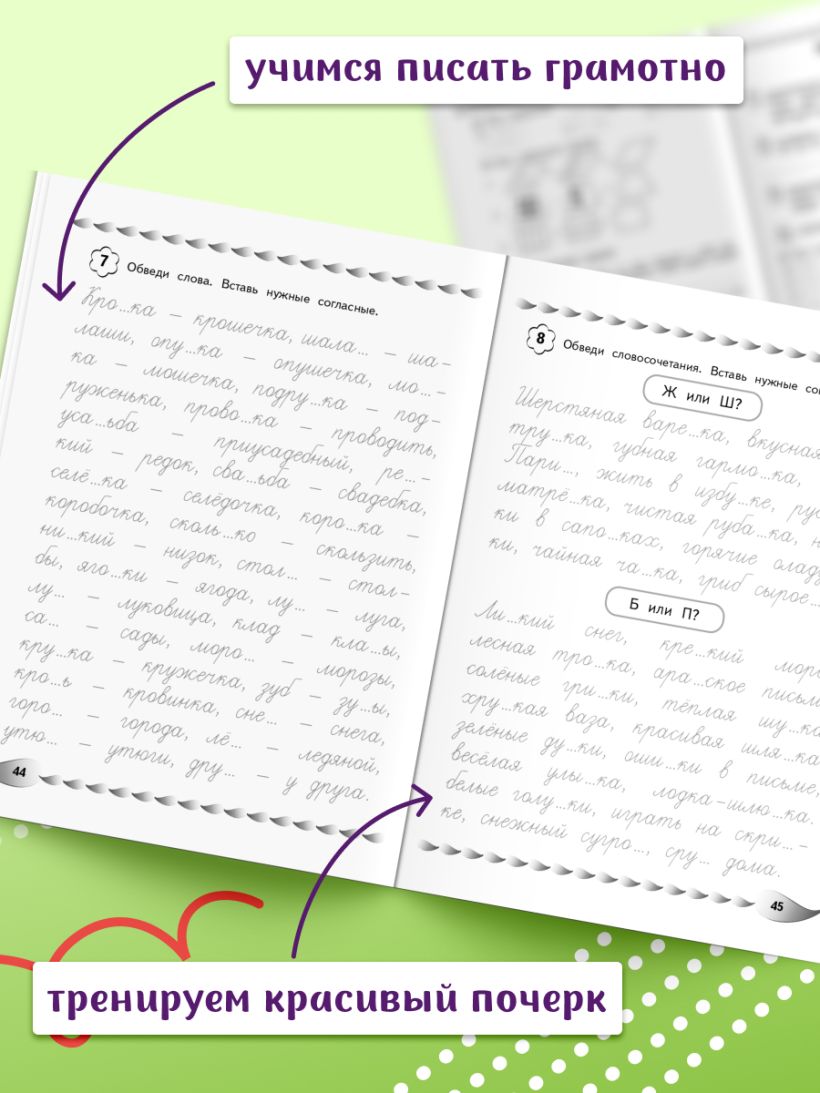 учимся писать грамотно
7 Обведи слова. Вставь нужные согласные.
Кро...ка – крошечка, шала... – ша-
лаши, опу...ка – опушечка, мо... –
ка – мошечка, подру...ка – под-
руженька, прово...ка – проводить,
уса...ьба – приусадебный, ре... –
кий – редок, сва...ьба – свадебка,
селё...ка – селёдочка, коро...ка –
коробочка, сколь...ко – скользить,
ни...кий – низок, стол... – стол-
бы, яго...ки – ягода, лу... – луга,
лу... – луковица, клад – кла...ы,
са... – сады, моро... – морозы,
кру...ка – кружечка, зуб – зу...ы,
кро...ь – кровинка, сне... – снега,
горо... – города, лё... – ледяной,
утю... – утюги, дру... – у друга.
44
8 Обведи словосочетания. Вставь нужные
Ж или Ш?
Шерстяная варе...ка, вкусная
тру...ка, губная гармо...ка,
Пари..., жить в избу...ке,
матрё...ка, чистая руба...ка,
ки в сапо...ках, горячие
ки, чайная ча...ка, гриб сырое...
Б или П?
Ли...кий снег, кре...кий
лесная тро...ка, ара...ское
солёные гри...ки, тёплая шу...ка
хру...кая ваза, красивая шля...ка
зелёные ду...ки, оши...ки в письме,
весёлая улы...ка, лодка-шлю...ка.
белые голу...ки, играть на скри... –
ке, снежный сугро..., сру... дома.
45
тренируем красивый почерк